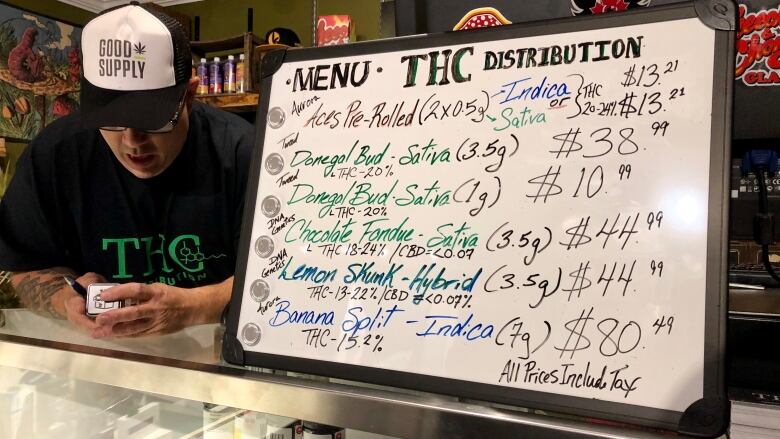 GOOD
SUPPLY
THC
·MENU· THC DISTRIBUTION
Aurora Aces Pre-Rolled (2x0.5g) -Indica or Sativa THC 20-24% $13.21
$13.21
Tweed Donegal Bud - Sativa (3.5g) $38.99
THC-20%
Tweed Donegal Bud-Sativa (1g) $10.99
THC-20%
DNA Genetics Chocolate Fondue - Sativa (3.5g) $44.99
THC 18-24% /CBD <0.07
DNA Genetics Lemon Skunk - Hybrid (3.5g) $44.99
THC-13-22% /CBD <0.07%
Aurora Banana Split - Indica (7g) $80.49
THC-15.2%
All Prices Include Tax